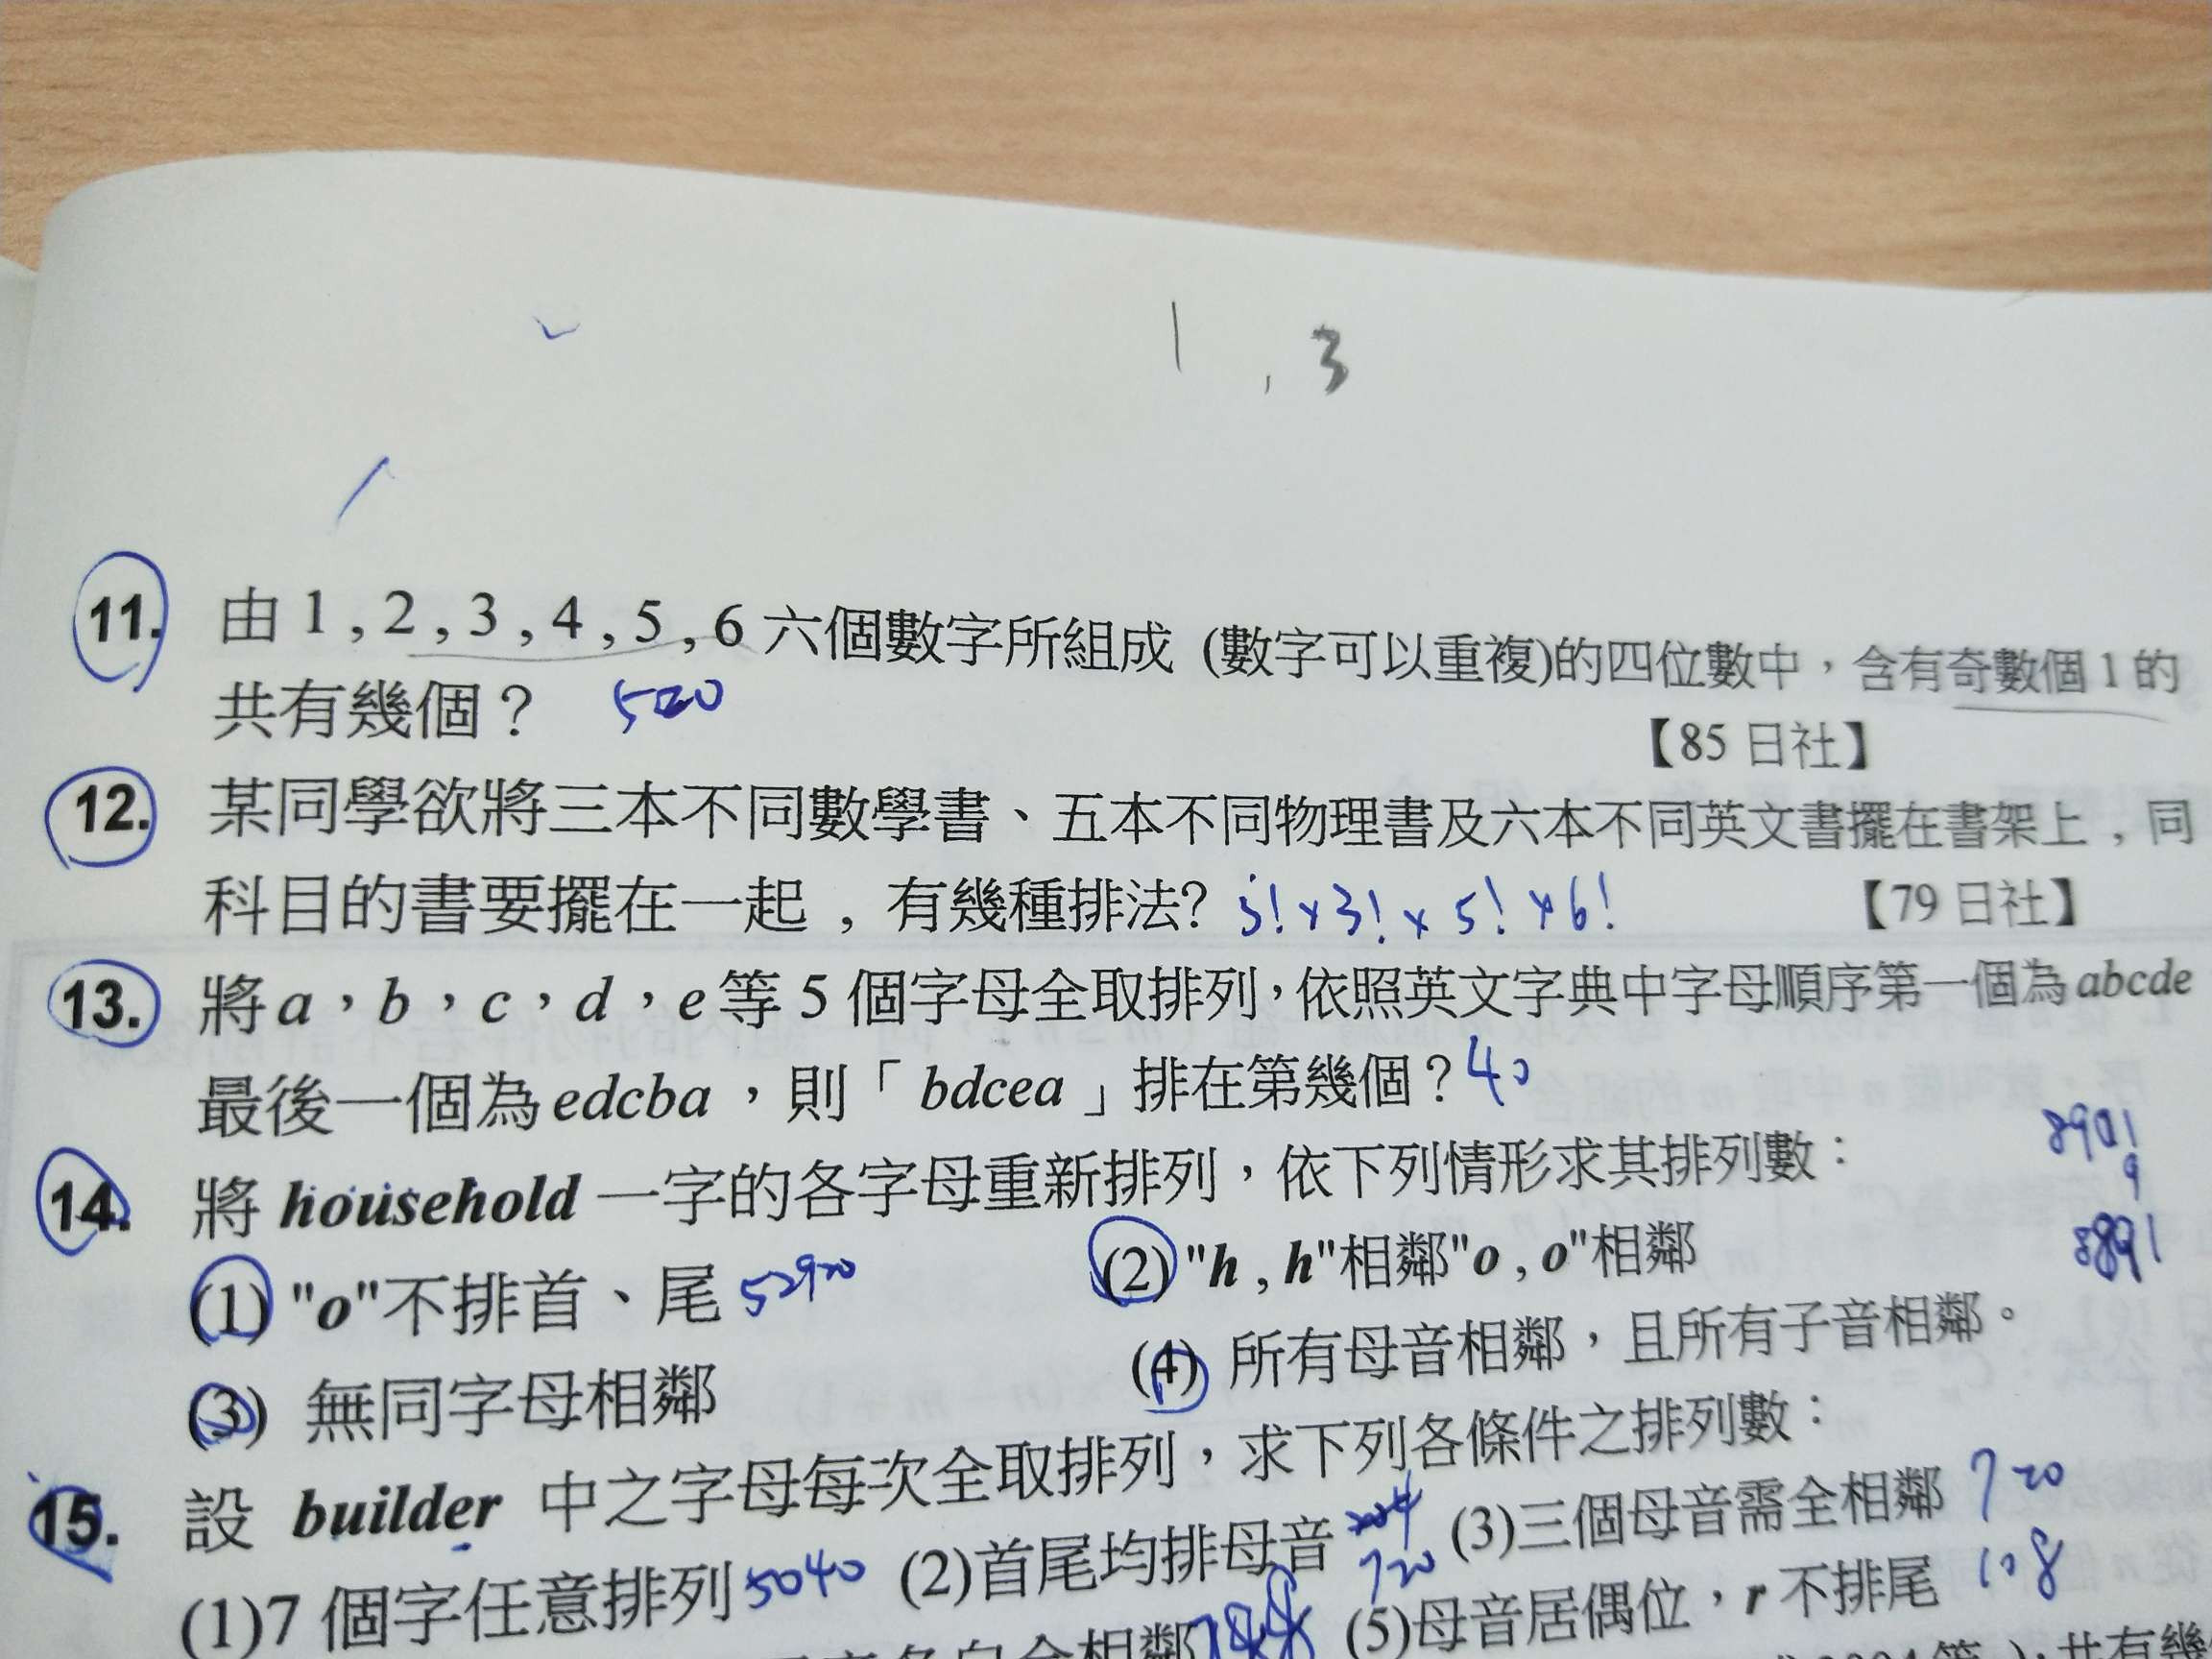 1 , 3
11. 由 1 , 2 , 3 , 4 , 5 , 6 六個數字所組成 (數字可以重複)的四位數中，含有奇數個 1 的
共有幾個？ 520
【85 日社】
12. 某同學欲將三本不同數學書、五本不同物理書及六本不同英文書擺在書架上，同
科目的書要擺在一起，有幾種排法? 3! × 3! × 5! × 6! 【79 日社】
13. 將 a，b，c，d，e 等 5 個字母全取排列，依照英文字典中字母順序第一個為 abcde
最後一個為 edcba ，則「 bdcea 」排在第幾個？ 40
14. 將 household 一字的各字母重新排列，依下列情形求其排列數：
(1) "o"不排首、尾 52920 (2) "h , h"相鄰"o , o"相鄰
(3) 無同字母相鄰 (4) 所有母音相鄰，且所有子音相鄰。
15. 設 builder 中之字母每次全取排列，求下列各條件之排列數：
(1)7 個字任意排列 5040 (2)首尾均排母音 720 (3)三個母音需全相鄰 720
全相鄰 (5)母音居偶位，r 不排尾 108
共有幾